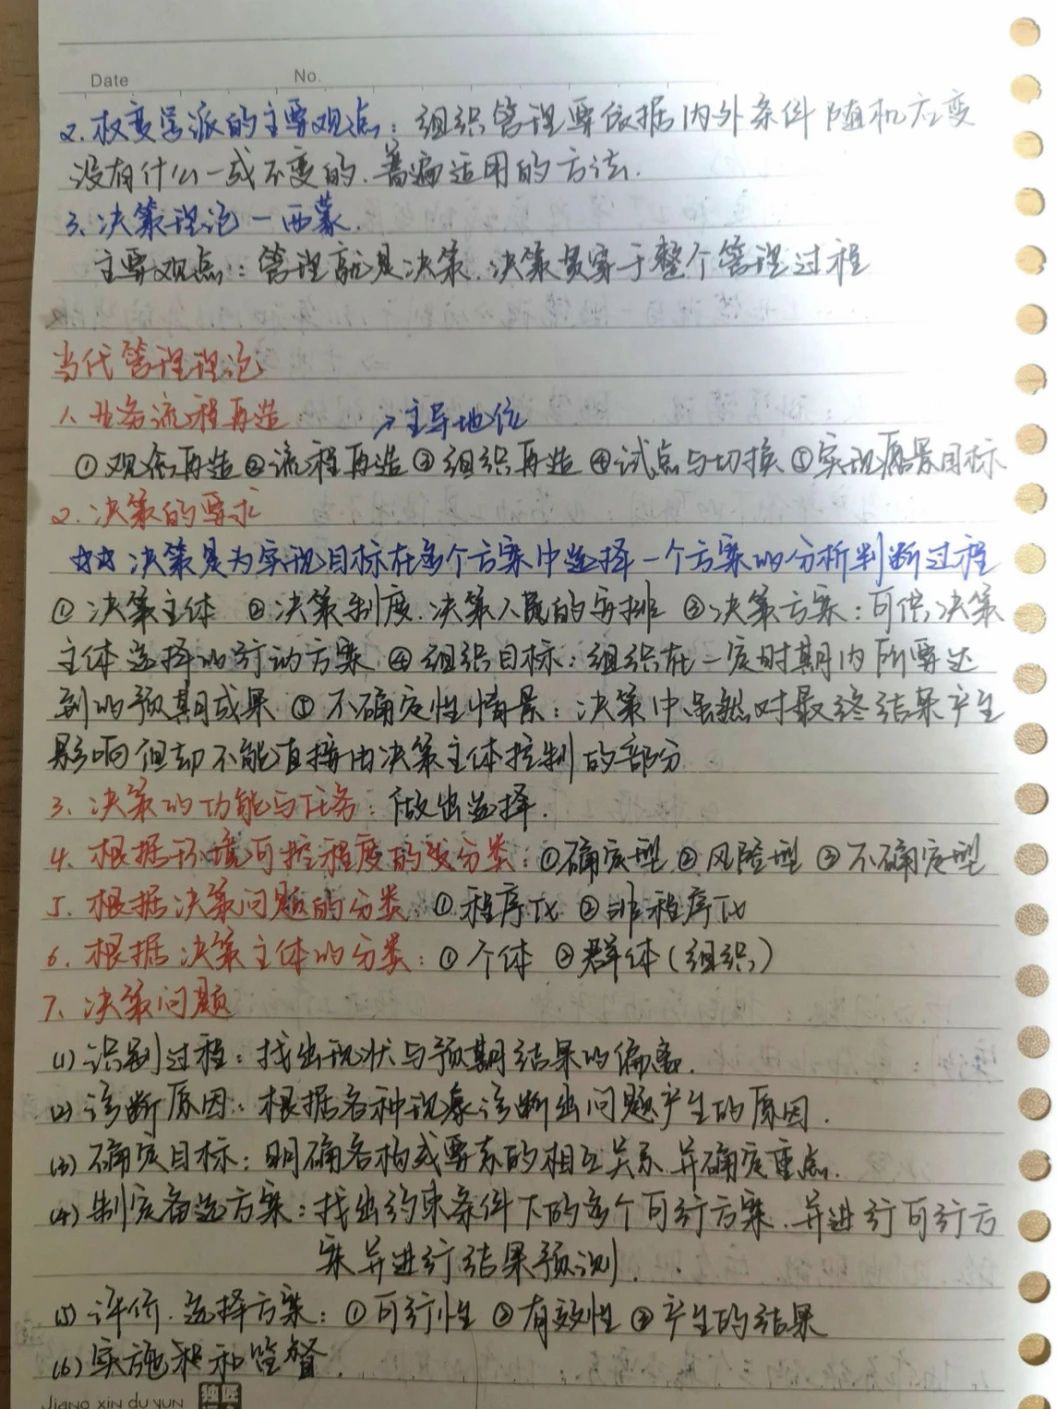 Date
No.
2. 权变学派的主要观点：组织管理要依据内外条件随机应变
没有什么一成不变的、普遍适用的方法.
3. 决策理论－西蒙.
主要观点：管理就是决策、决策贯穿于整个管理过程
当代管理理论
1. 业务流程再造
→主导地位
①观念再造②流程再造③组织再造④试点与切换⑤实现愿景目标
2. 决策的要求
☆☆ 决策是为实现目标在多个方案中选择一个方案的分析判断过程
①决策主体 ②决策制度.决策人员的安排 ③决策方案：可供决策
主体选择的行动方案 ④组织目标：组织在一定时期内所要达
到的预期成果 ⑤不确定性情景：决策中虽然对最终结果产生
影响但却不能直接由决策主体控制的部分
3. 决策的功能与任务：做出选择.
4. 根据环境可控程度的分类：①确定型 ②风险型 ③不确定型
5. 根据决策问题的分类：①程序化 ②非程序化
6. 根据决策主体的分类：①个体 ②群体（组织）
7. 决策问题
(1) 识别过程：找出现状与预期结果的偏离.
(2) 诊断原因：根据各种现象诊断出问题产生的原因.
(3) 确定目标：明确各构成要素的相互关系.并确定重点.
(4) 制定备选方案：找出约束条件下的多个可行方案.并进行可行方
案并进行结果预测.
(5) 评价.选择方案：①可行性 ②有效性 ③产生的结果
(6) 实施和监督.
Jiang xin du yun
独匠